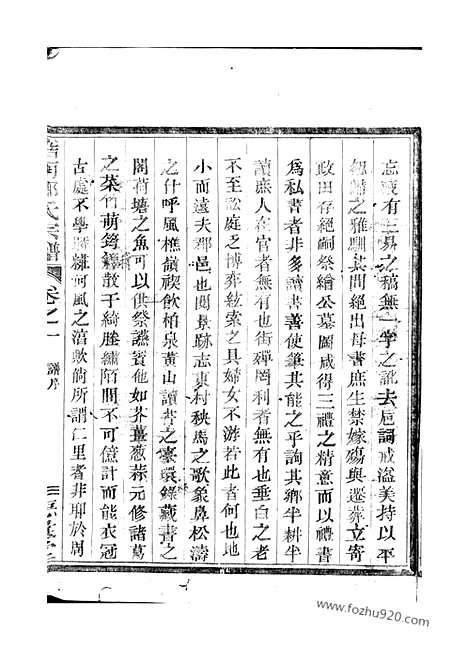 忘或有三易之稿無一學之訛去巵詞戒溢美持以平
之雅馴其間絕出母書庶生禁嫁殤與遷葬立寄
政田存絕嗣祭繪公墓圖咸得三禮之精意而以禮書
爲私書者非多讀書善使筆其能之乎詢其鄉半耕半
讀庶人在官者無有也街殫罔利者無有也垂白之老
不至訟庭之博弈絃索之具婦女不游若此者何也地
小而遠夫郡邑也閱景跡志東村秧馬之歌象鼻松濤
之什呼風樵嶺禊飲柏泉黃山讀書之寮環綠藏書之
閣荷塘之魚可以供祭讌賓他如芥薑薇蕀元修諸葛
之菜竹萌錦籜散于綺塍繡陌間不可億計而能衣冠
古處不學時雜何風之淯歟倘所謂仁里者非耶於周
氏宗譜
卷之一
譜序
www.fozhu920.com